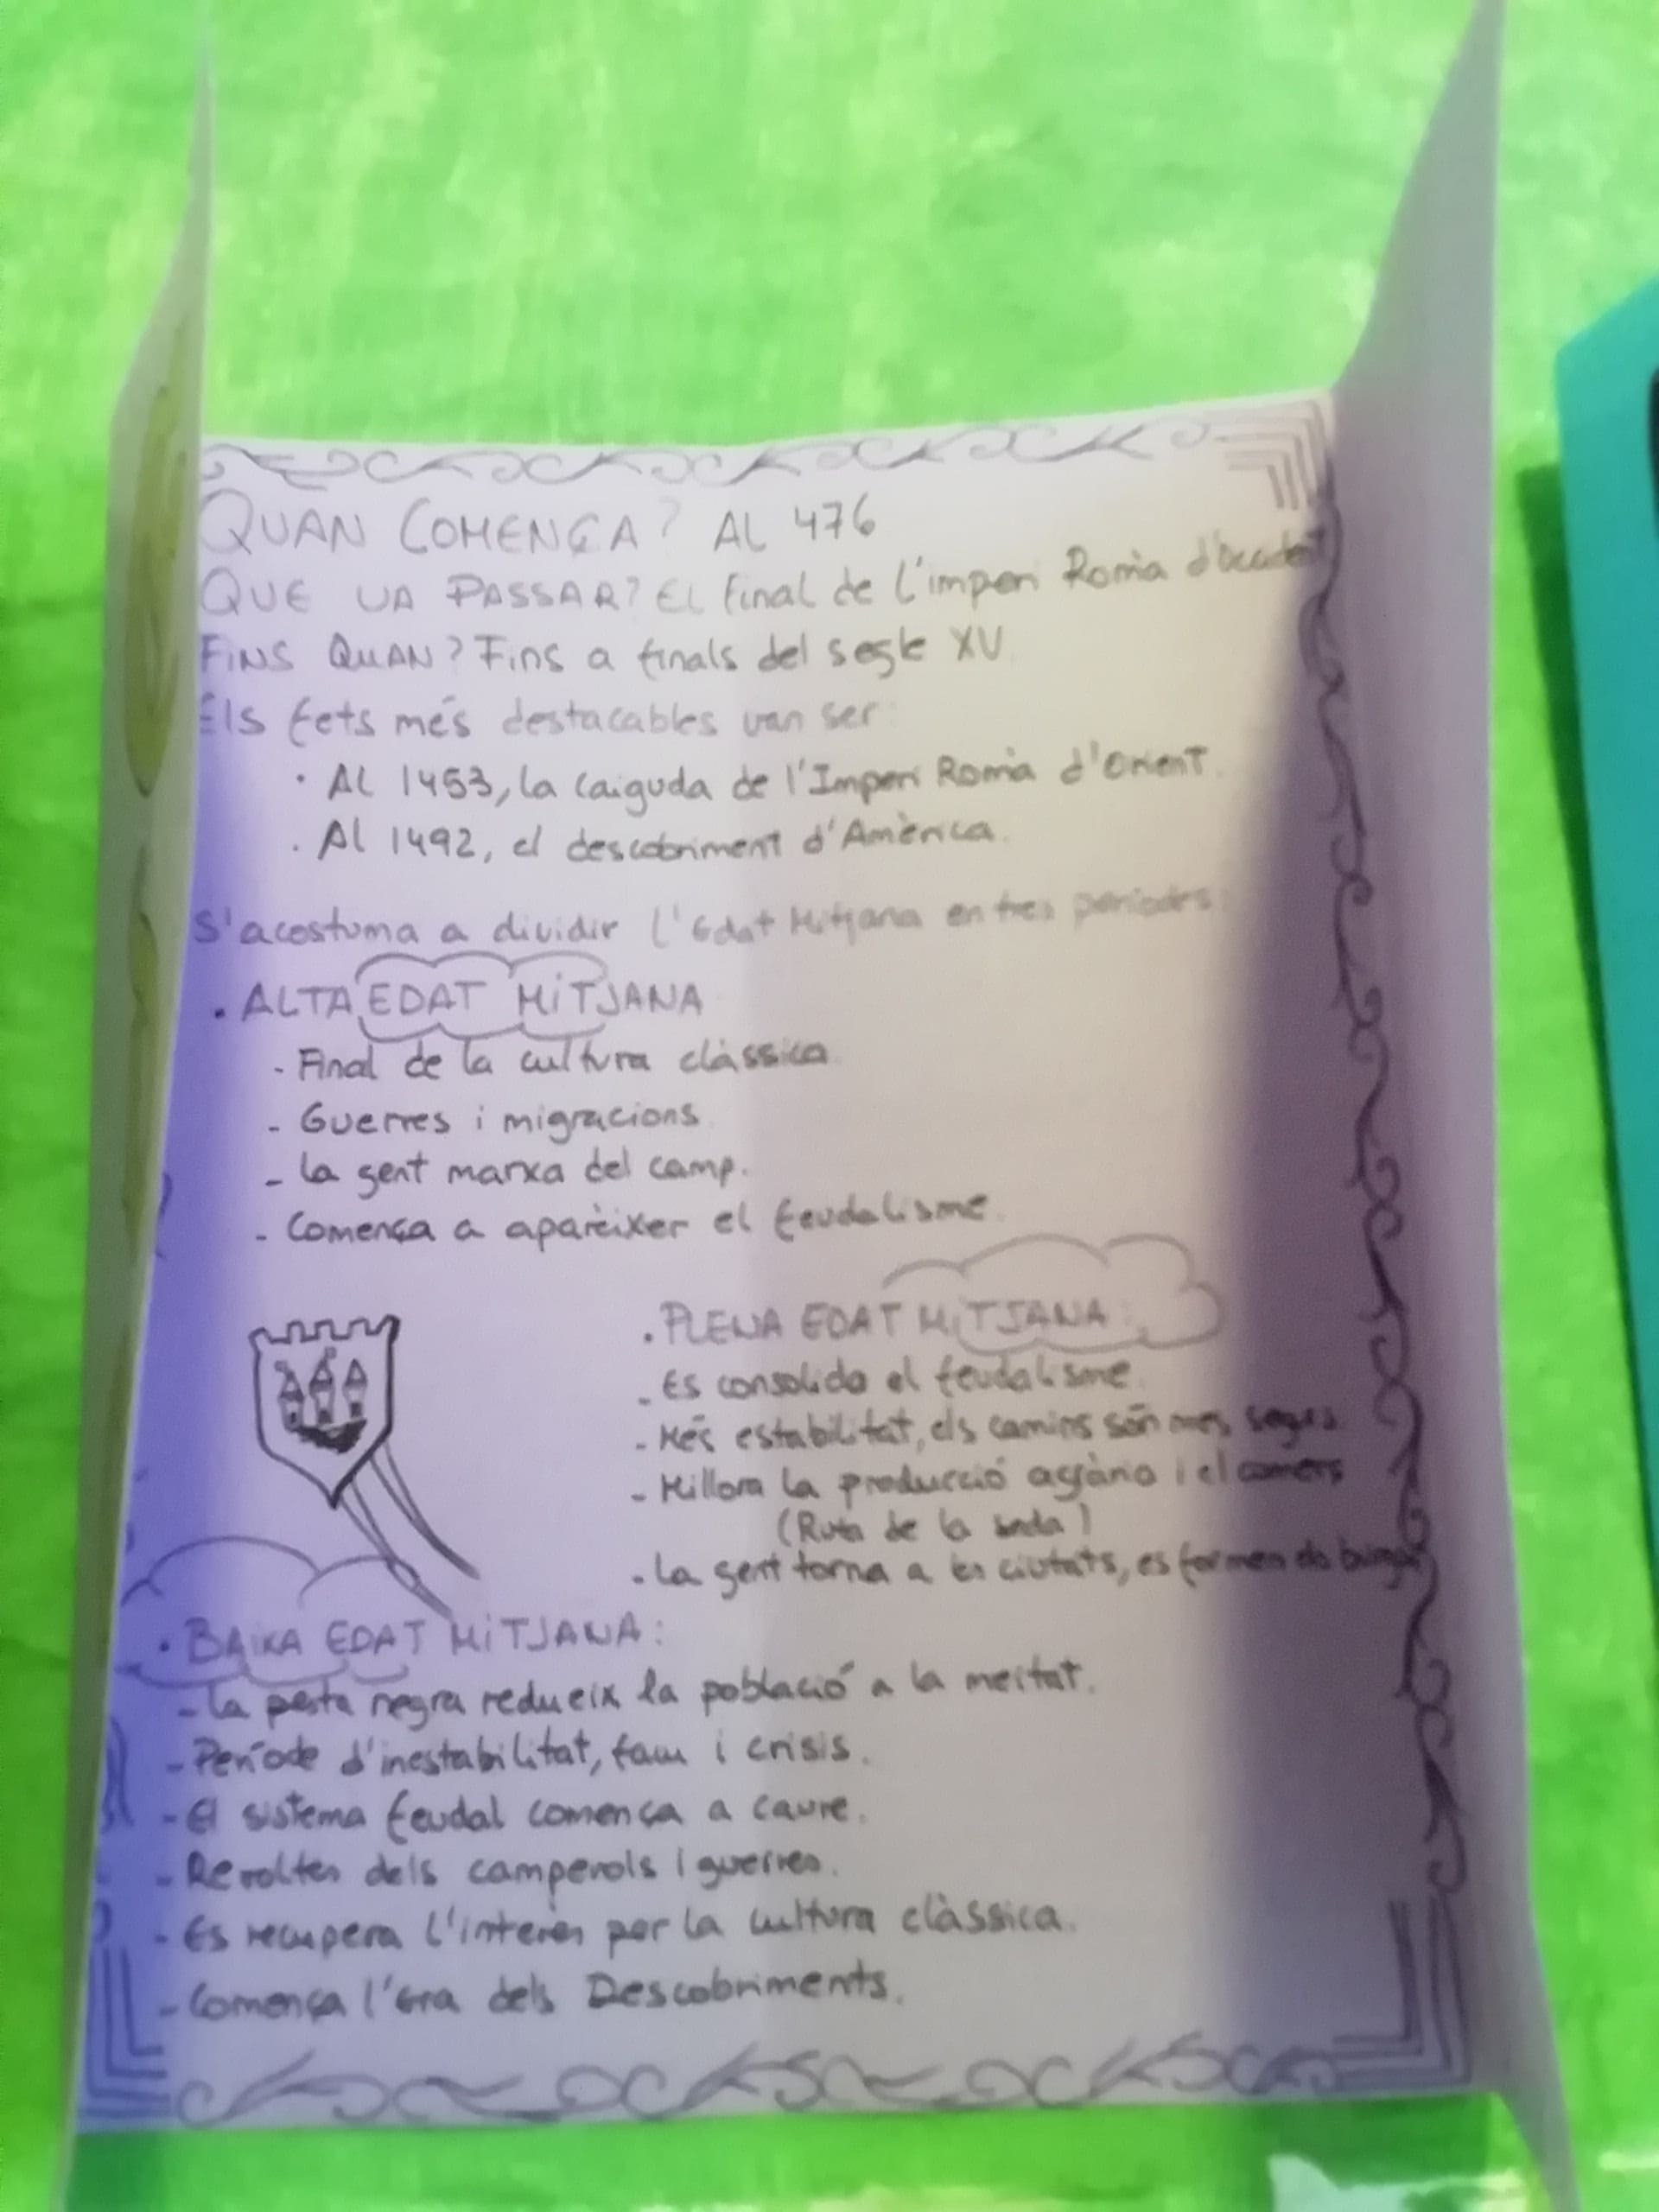 QUAN COMENÇA? AL 476
QUE VA PASSAR? EL final de l'imperi Romà d'occident
FiNS QUAN? Fins a finals del segle XV.
Els fets més destacables van ser:
· Al 1453, la caiguda de l'Imperi Romà d'Orient.
· Al 1492, el descobriment d'Amèrica.
S'acostuma a dividir l'Edat Mitjana en tres períodes:
· ALTA EDAT MiTJANA
- Final de la cultura clàssica.
- Guerres i migracions.
- La gent marxa del camp.
- Comença a aparèixer el feudalisme.
· PLENA EDAT MiTJANA:
- Es consolida el feudalisme.
- Més estabilitat, els camins són més segurs.
- Millora la producció agrària i el comerç
(Ruta de la seda)
· La gent torna a les ciutats, es formen els
· BAiXA EDAT MiTJANA:
- La pesta negra redueix la població a la meitat.
- Període d'inestabilitat, fam i crisis.
- El sistema feudal comença a caure.
- Revoltes dels camperols i guerres.
- Es recupera l'interès per la cultura clàssica.
- Comença l'Era dels Descobriments.